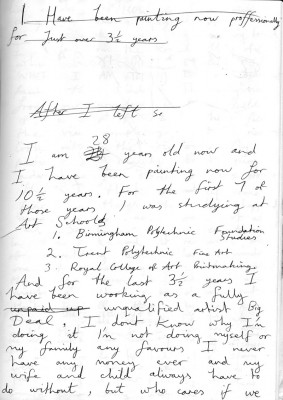 I Have been painting now proffessionally
for Just over 3½ years
After I left s
28
I am years old now and
I have been painting now for
10½ years. For the first 7 of
those years, I was studying at
Art Schools
1. Birmingham Polytechnic Foundation
Studies
2. Trent Polytechnic Fine Art
3. Royal College of Art Printmaking.
And for the last 3½ years I
have been working as a fully
unpaid up unqualified artist Big
Deal. I dont know why I'm
doing it I'm not doing myself or
my family any favours I never
have any money ever and my
wife and child always have to
do without, but who cares if we